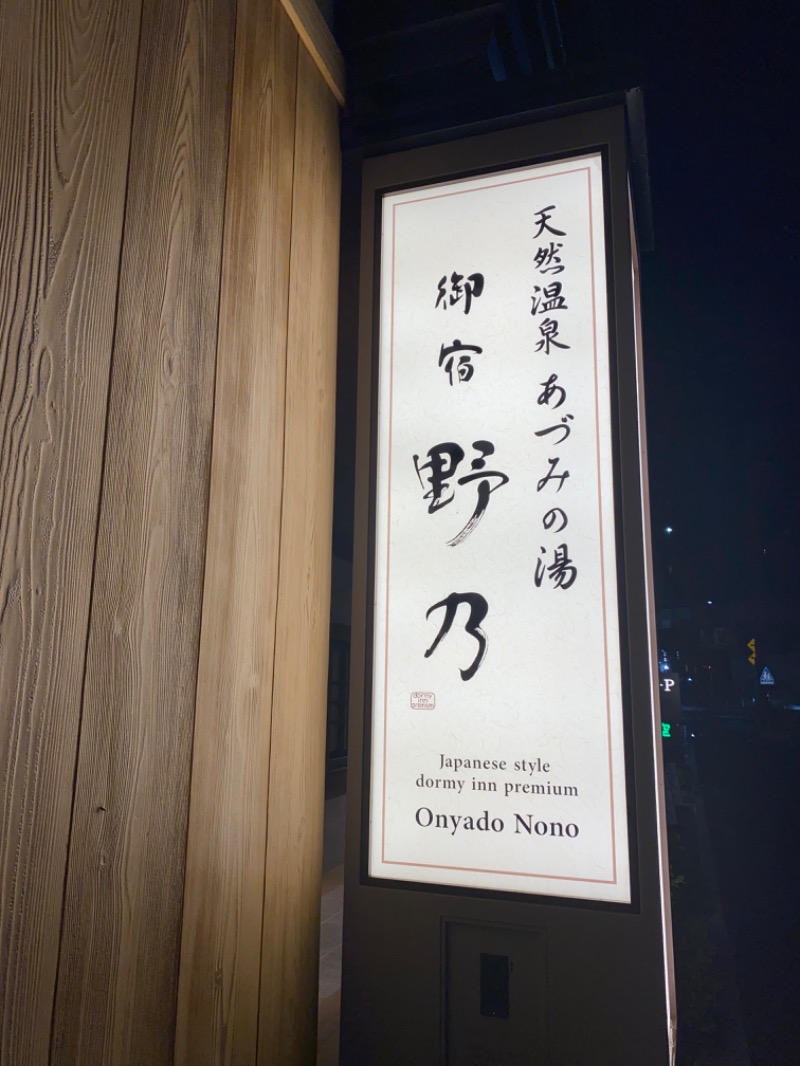 天然温泉 あづみの湯
御宿 野乃
dormy
inn
premium
Japanese style
dormy inn premium
Onyado Nono
P